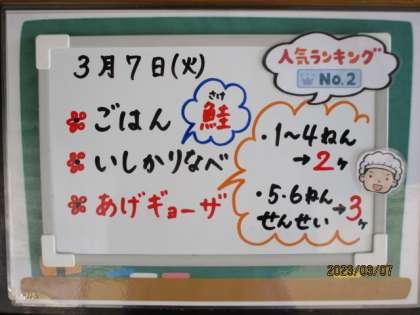 3月7日(火)
人気ランキング
No.2
ごはん
さけ
鮭
いしかりなべ
あげギョーザ
・1〜4ねん
→2ヶ
・5・6ねん
せんせい→3ヶ
2023/03/07